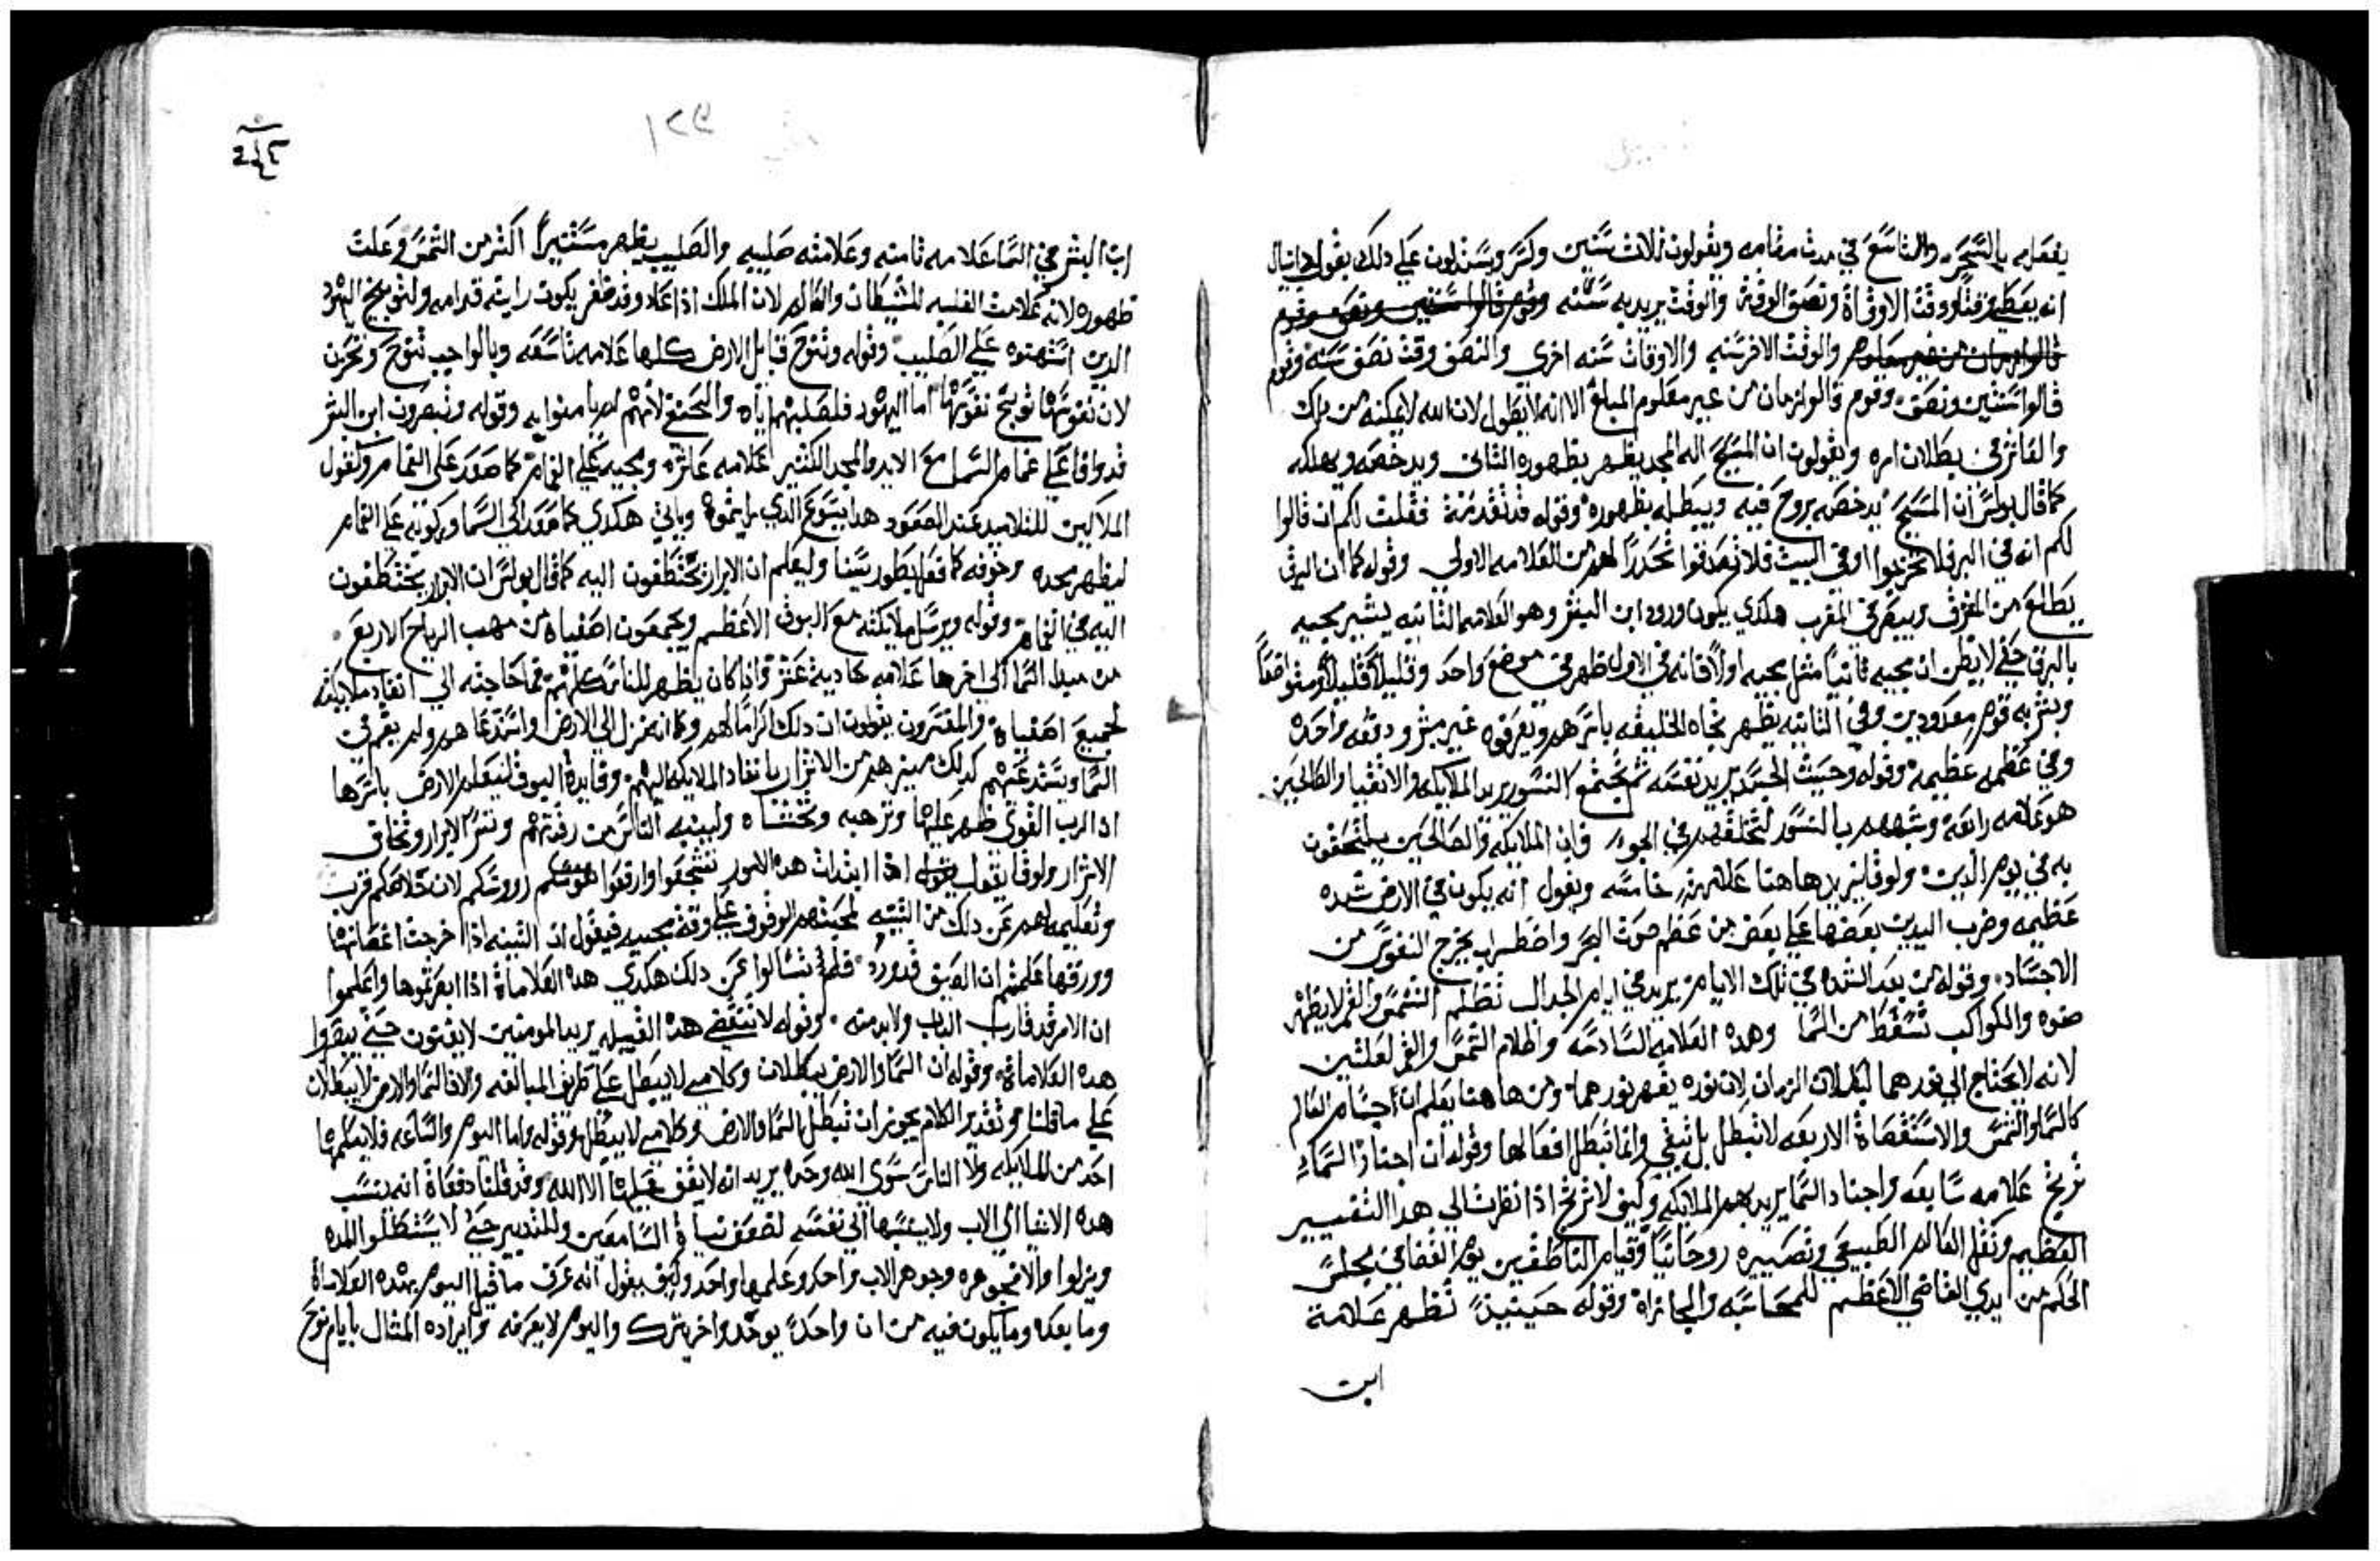 يفعله بالسَحَره والتاسَع في مدت مقامه ويقولون ثلاث سَنين وكسَر ويسَتدلون عَلي دلك بقول دانيال
انه يعَطي وقتًا ووقت الاوقاة ونصَف الوقة والوقت يريد به سَنَه وقوم قالوا سَنتين ونصَف وقوم
قالوا زمان من غير معَلوم والوقت الاخر سَنه والاوقات سَنه اخري والنصَف وقت نصَف سَنه وقوم
قالوا سَنتين ونصَف وقوم قالوا زمان من غير معَلوم المبلغ الا انه لا يطول لان الله لا يمكنه من
والعَاشر في بطلان امره ويقولون ان المسَيح اله المجد يظهر بظهوره الثاني ويدحضه ويهلكه
كما قال بولسَ ان المسَيح يدحضه بروح فيه ويبطله بظهوره وقوله قد تقدمة فقلت لكم ان قالوا
لكم انه في البر فلا تخرجوا او في البيت فلا تصَدقوا تحدرًا لهم من العَلامه الاولي وقوله كما ان البرق
يطلعَ من المشرق ويبصَر في المغرب هكدي يكون ورود ابن البشر وهو العَلامه الثانيه يشير بمجيه
بالبرق حتي لا يظن ان مجيه ثانيًا مثل مجيه اولًا فانه في الاول ظهر في موضعَ واحد وقليلًا قليلًا ومتواضعًا
وبشر به قوم معَدودين وفي الثانيه يظهر تجاه الخليقه باسَرهم ويعَرفوه غير مبشر ودفعَه واحده
وفي عَظمه عظيمه وقوله وحيث الجسَد يريد نفسَه ثم تجتمعَ النسَور يريد الملايكه والاتقيا والصَالحين
هو عَلامه رابعَة وشبههم بالنسَور لتحلقهم في الجو وان الملايكه والصَالحين يلتحقون
به في يوم الدين ولوقا يزيد هاهنا عَلامة خامسَه ويقول انه يكون في الارض شده
عَظيمه وضرب اليدين بعَضها عَلي بعَض من عَظم صَوت البحر واضطراب يخرج النفوسَ من
الاجسَاد وقوله من بعَد الشده في تلك الايام يريد في ايام الدجال تظلم الشمسَ والقمر لا يظهر
ضوه والكواكب تسَقط من السَما وهده العَلامه السَادسَه واظلام الشمسَ والقمر لعَلتين
لانه لا يحتاج الي نورهما لبطلان الزمان لان نوره يقهر نورهما ومن هاهنا يعَلم ان اجسَام العَالم
كالسَما والشمسَ والاسَتقصَاة الاربعَه لا تبطل بل تبقي وانما تبطل افعَالها وقوله ان اجناد السَماء
ترتج عَلامه سَابعَه واجناد السَما يريد بهم الملايكه وكيف لا ترتج اذا نظرت الي هدا التغيير
العَظيم ونقل العَالم الطبيعَي وتصَييره روحَانيًا وقيام الناطقين يوم القضا في مجلسَ
الحَكم من ايدي القاضي الاعَظيم للمحَاسَبه والمجازاة وقوله حَينيذً تظهر عَلامة
ابن
١٢٩
ابن البشر في السَما عَلامه ثامنه وعَلامته صَليبه والصَليب يظهر مسَتنيرًا اكثر من الشمسَ وعَلت
ظهوره لانه عَلامت الغلبه للشيطان والعَالم لان الملك اذا عَاد وقد ظفر يكون رايته قدامه ولتوبيخ اليهُود
الدين اسَتهنوه عَلي الصَليب وقوله وتنوح قبايل الارض كلها عَلامه تاسَعَه وبالواجب تنوح وتحَزن
لان نفوسَها توبخ نفوسَها اما اليهود فلصَلبهم اياه والجميعَ لانهم لم يامنوا به وقوله وتبصَرون ابن البشر
قد وافا عَلي غمام السَما معَ الايد والمجد الكثير عَلامه عَاشره ومجيه عَلي الغمام كما صَعَد عَلي الغمام وكقول
الملاكين للتلاميد عَند الصَعَود هدا يسَوع الدي رايتموة وياتي هكدي كما صَعَد الي السَما وركوبه عَلي الغمام
ليظهر مجده وخوفه كما فعَل بطور سَينا وليعَلم ان الابرار يختطفون اليه كما قال بولسَ ان الابرار يختطفون
اليه في الغمام وقوله ويرسَل ملايكته معَ البوق الاعَظيم ويجمعَون اصَفياه من مهب الرياح الاربعَ
من مبدا السَما الي اخرها عَلامه حادية عَشر واذا كان يظهر للناسَ كلهم فما حَاجته الي انفاد ملايكته
لجميعَ اصَفياه والمفسَرون يقولون ان دلك اكرامًا لهم وكما انه نزل الي الارض واسَتدعَاهم ولم يقم في
السَما ويسَتدعَيهم كدلك ميزهم من الاشرار بانفاد الملايكه اليهم وفايدة البوق ليعَلم الارض باسَرها
ادا الرب القوي ظهر عَليها وترهبه وتخشاه ولينبه الناسَ من رقدتهم وتسَر الابرار وتخاف
الاشرار ولوقا يقول اذا ابتدات هده الامور تشجعَوا وارفعَوا روسَكم لان خلاصَكم قرب
وتعَليمه لهم عَن دلك من التينه لمحبتهم الوقوف عَلي وقت مجيه فيقول ان التينه اذا اخرجت اغصَانها
وورقها عَلمتم ان الصَيف قد ورد فلم تسَالوا عَن دلك هكدي هده العَلاماة اذا ابصَرتموها واعَلموا
ان الامر قد قارب الباب ولابد منه وقوله لا تنقضي هده القبيله يريد المومنين لا يفنون حتي يبصَروا
هده العَلاماة وقوله ان السَما والارض يبطلان وكلامي لا يبطل عَلي طريق المبالغه والا فالسَما والارض لا يبطلان
عَلي ما قلنا وتقدير الكلام يجوز ان تبطل السَما والارض وكلامي لا يبطل وقوله واما اليوم والسَاعَه فلا يعَلمها
احَد من الملايكه ولا الناسَ سَوي الله وحَده يريد انه لا يقف عليها الا الله وقد قلنا دفعَاة انه ينسَب
هده الاشيا الي الاب ولا ينسَبها الي نفسَه لضعَف نيا السَامعَين وللتدبير حَتي لا يسَتطلوا المده
وينزلوا والا فجوهره وجوهر الاب واحَد وعَلمهما واحَد وكيف يقول انه عَرف ما قبل اليوم بهده العَلاماة
وما بعَده وما يكون فيه من ان واحَدً يوخد واخر يترك واليوم لا يعَرفه وايراده المثال بايام نوحَ